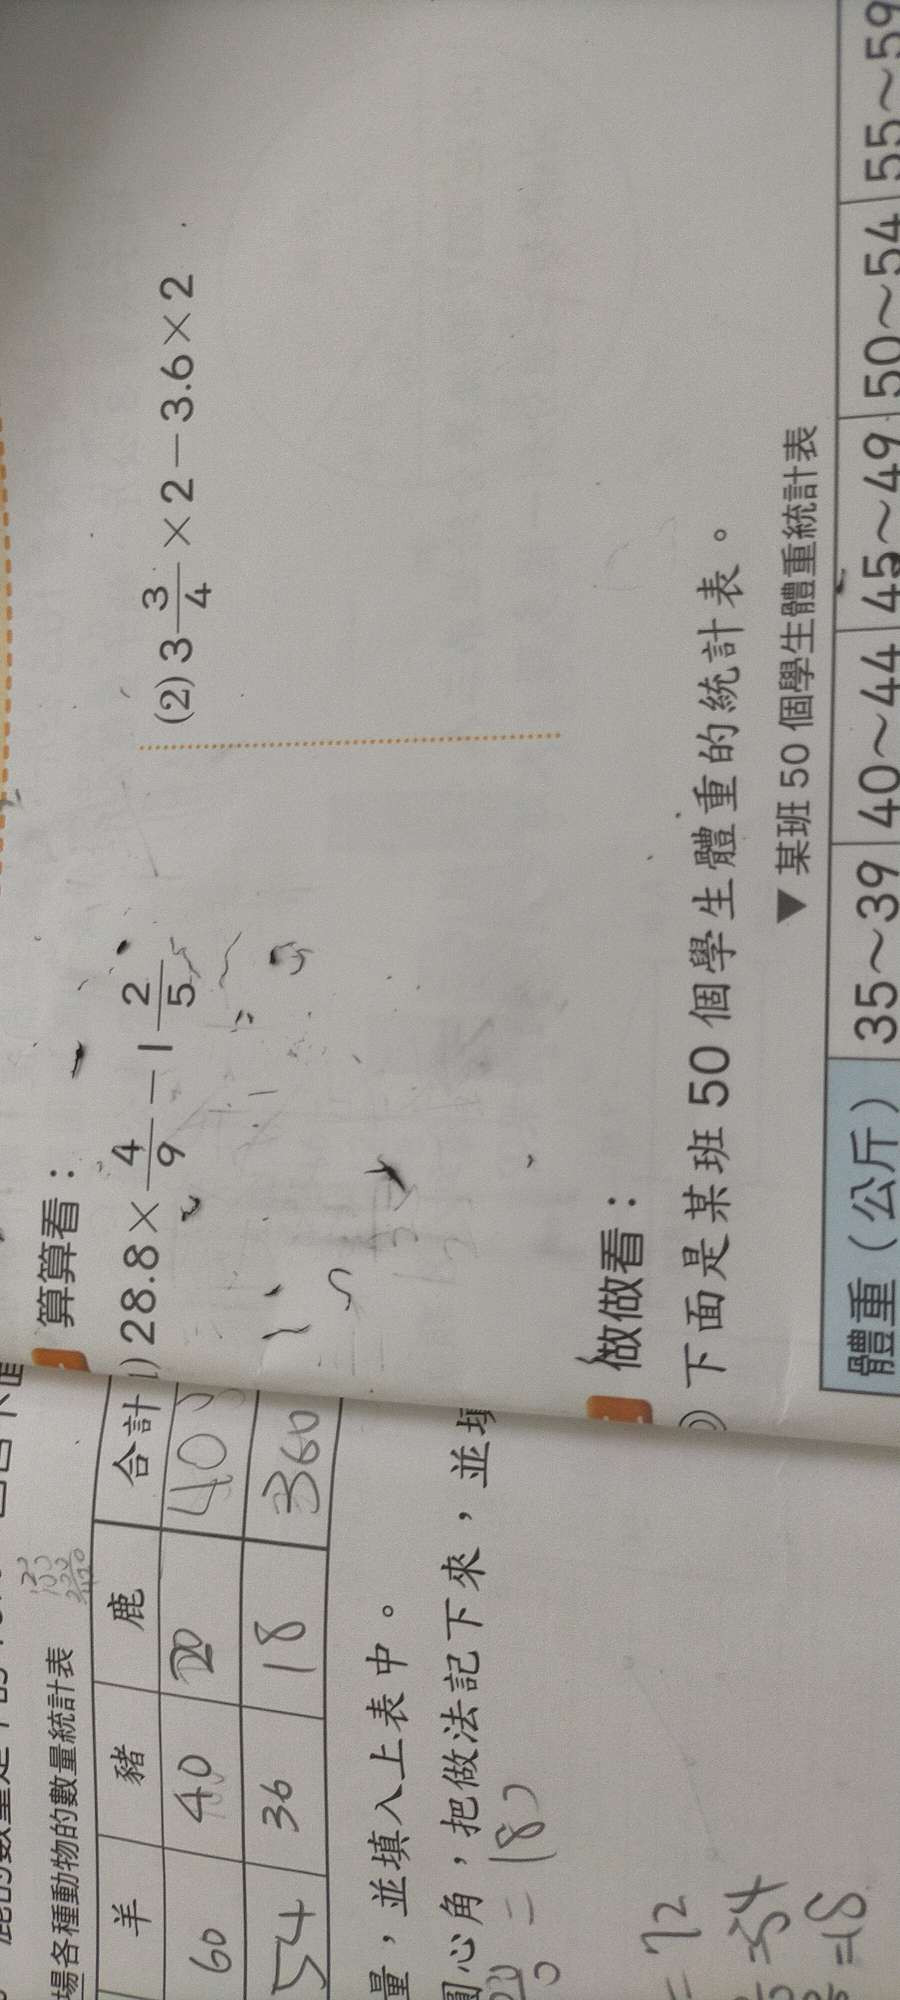 算算看：
(1) 28.8 × 4/9 − 1 2/5
(2) 3 3/4 × 2 − 3.6 × 2
做做看：
下面是某班 50 個學生體重的統計表。
▼ 某班 50 個學生體重統計表
體重（公斤） 35～39 40～44 45～49 50～54 55～59
場各種動物的數量統計表
羊 豬 鹿 合計
60 40 20 400
54 36 18 360
量，並填入上表中。
圓心角，把做法記下來，並填
= 180
= 72
= 54
= 18